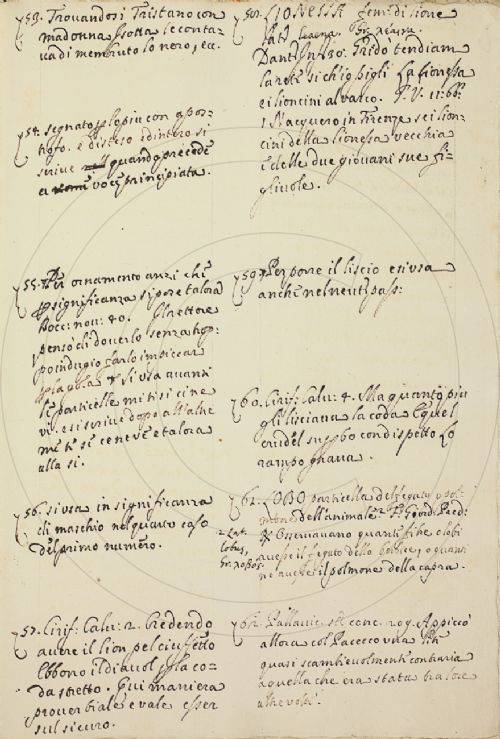 53. Trovandosi Tristano con
madonna Isotta le contava
di membruto lo nero, ec.
54. segnato
trofo. è disteso ed intero si
scrive quando precede
a voci principiata.
55. Per ornamento anzi che
significanza si pone talora
Bocc: nov: 40. Il rettore
pensò di doverlo senza trop-
po indugio farlo impiccar
per la gola & si usa avanti
le particelle mi ti si ci ne
vi. e si scrive dopo all'altre
me te se ce ne ve e talora
alla si.
56. si usa in significanza
di maschio nel quarto caso
del primo numero.
57. Cirif: Calv: 2. Credendo
avere il lion pel ciuffetto
Ebbono il diavol per la co-
da stretto. Qui maniera
proverbiale e vale esser
sul sicuro.
58. LIONESSA fem: di lione
Lat: leaena. Gr: λέαινα.
Dant: Inf: 30. tendiam
la rete sì ch'io pigli La lionessa
e i lioncini al varco. G. V. 11: 66:
Nacquero in Firenze sei lion-
cini della lionessa vecchia
E delle due giovani sue fi-
gliuole.
59. Per porre il liscio e si usa
anche nel neut: pass:
60. Cirif: Calv: 4. Ma quanto più
gli lisciava la coda E quel
crudel con dispetto Lo
rampognava.
61. LOBO particella del fegato o pol-
mone dell'animale. Gr: Lat:
lobus, Gr: λοβός.
Osservavano quante fibre e lobi
avesse il fegato dello , o quanti
ne avesse il polmone della capra.
62. Pallavic: st: conc: 209. Appiccò
allora col Pacecco una lite
quasi scambievolmente contraria
a quella che era stata tra loro
altre volte.